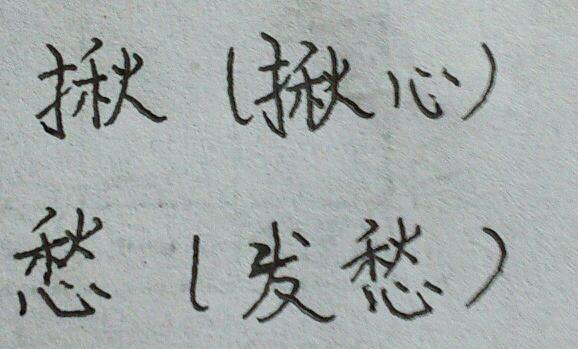 揪（揪心）
愁（发愁）